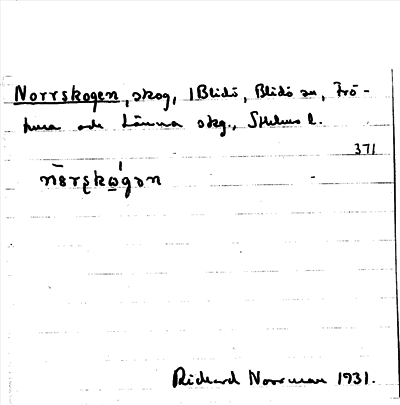 Norrskogen, skog, i Blidö, Blidö sn, Frö-
tuna och Länna skg., Sthlms l.
371
Rickard Norrman 1931.